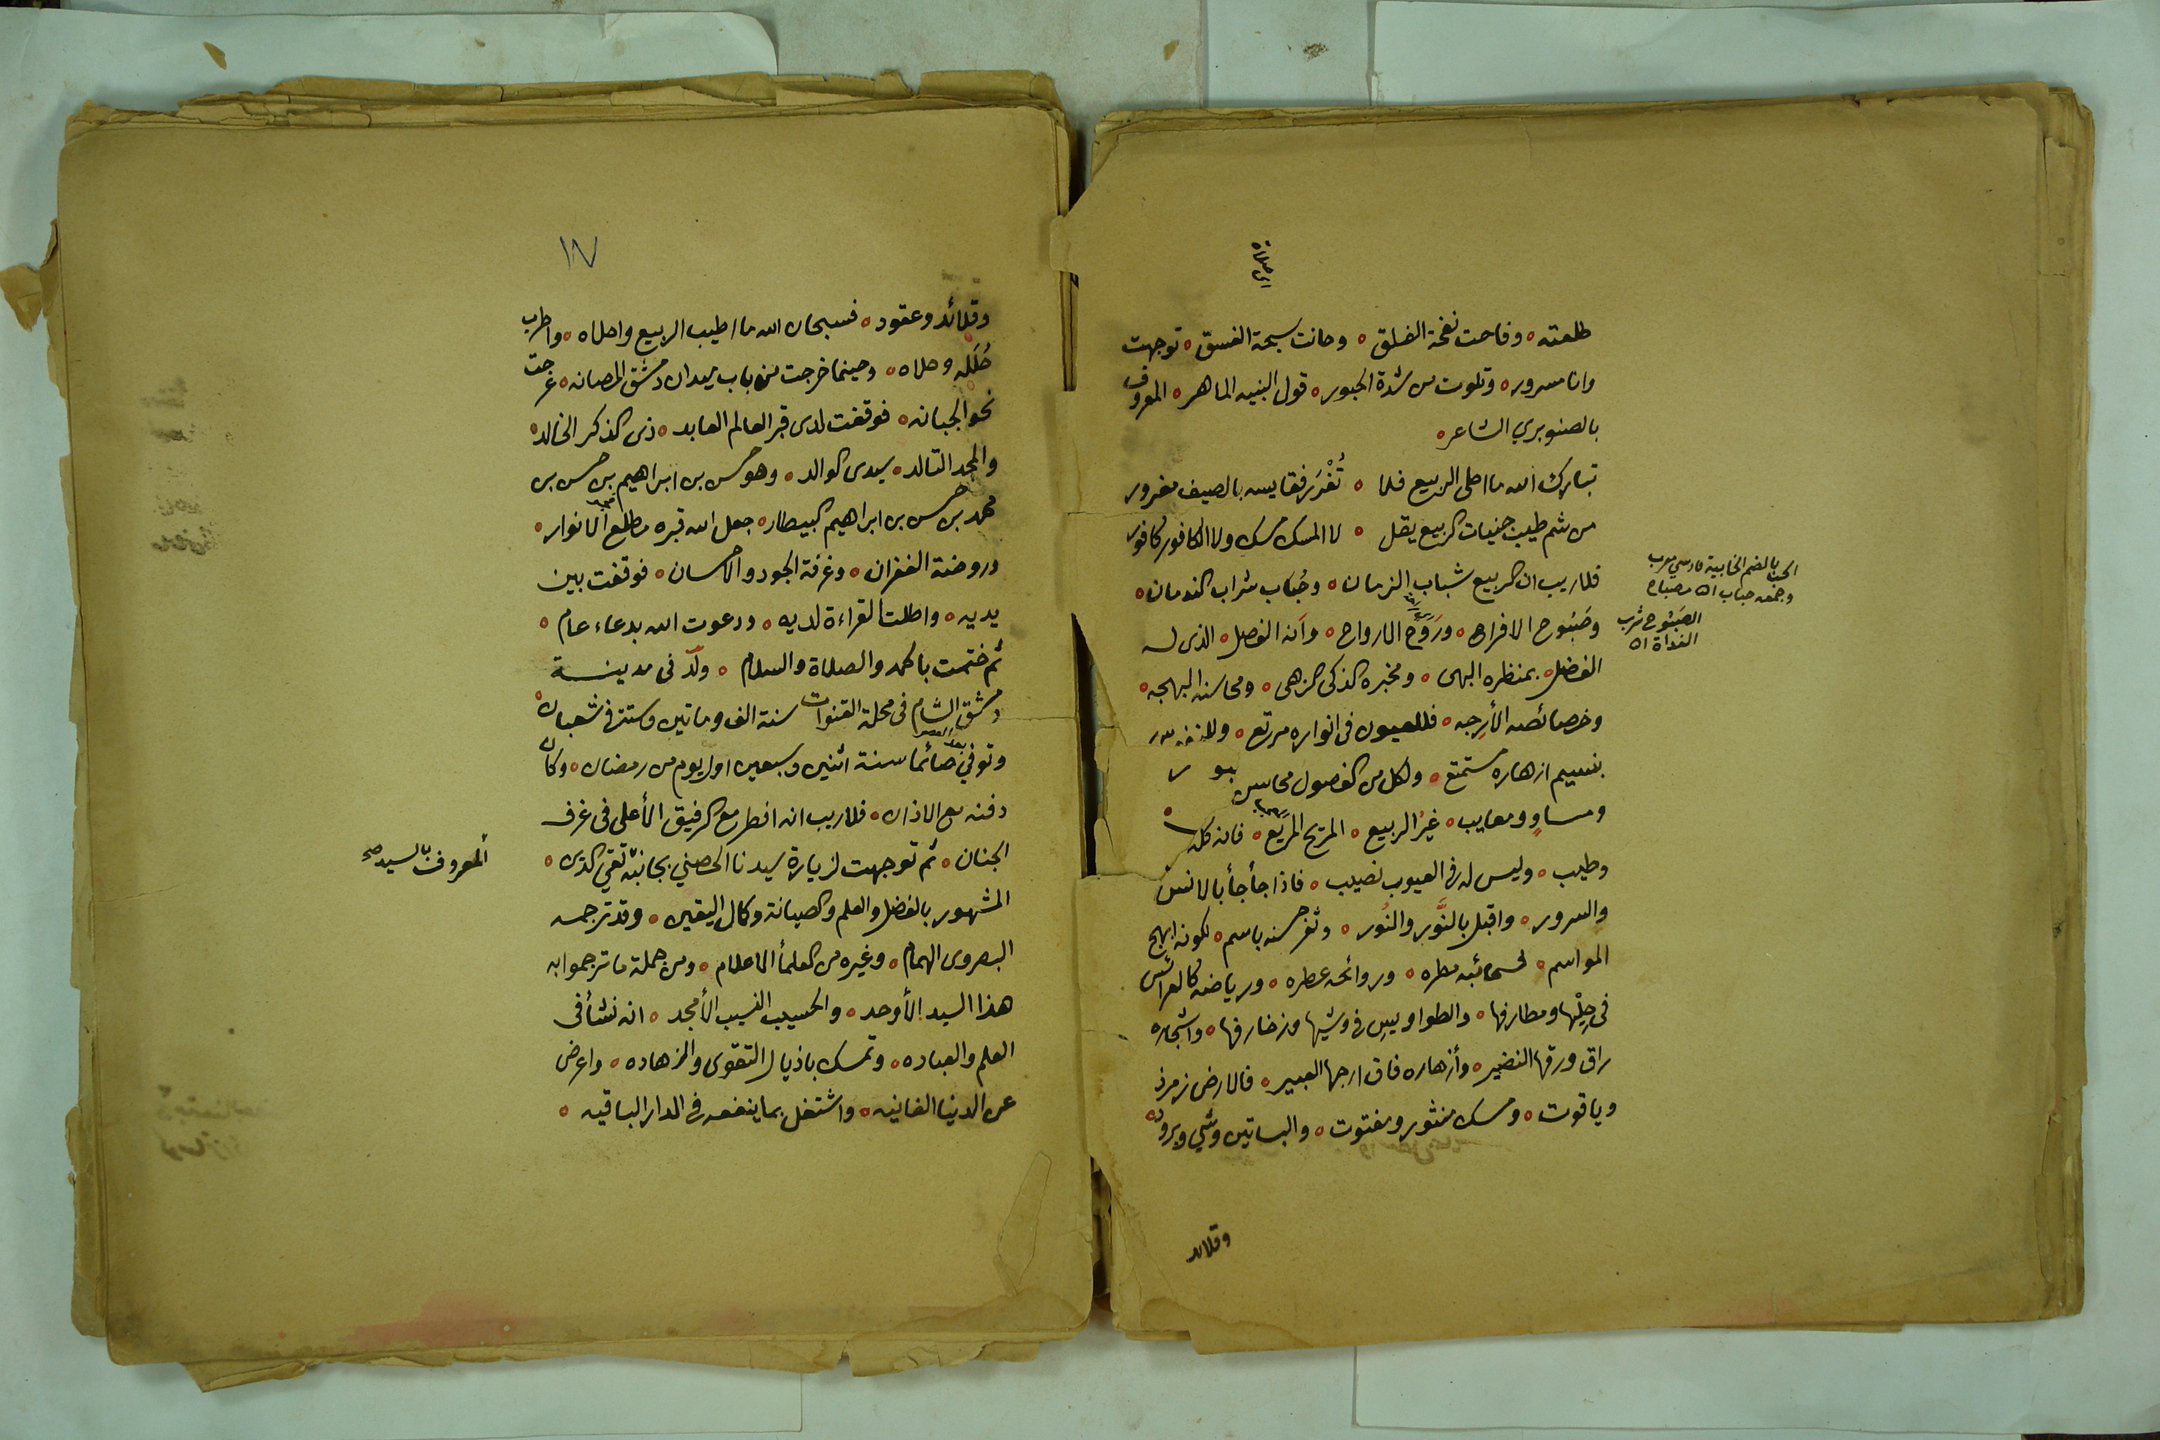 طلعته ٥ وفاحت نفحة الفلق ٥ وحانت سبحة الغسق ٥ توجهت
وانا مسرور ٥ وتلوت من شدة الحبور ٥ قول النبيه الماهر ٥ المعروف
بالصنوبري الشاعر ٥
تبارك الله ما احلى الربيع فلا ٥ تُغْرَر فقايسه بالصيف مغرور
من شم طيب جنيات الربيع يقل ٥ لا المسك مسك ولا الكافور كافور
فلا ريب ان الربيع شباب الزمان ٥ وحُباب شراب الندمان ٥
وصَبُوح الافراح ٥ ورَوْح الارواح ٥ وانه الفصل ٥ الذي له
الفضل ٥ بمنظره البهى ٥ ومخبره الذكى الزهى ٥ ومحاسنه البهجه ٥
وخصائصه الأرِجه ٥ فللعيون فى انواره مرتع ٥ وللنفوس
بنسيم ازهاره مستمتع ٥ ولكل من الفصول محاسن
ومساوٍ ومعايب ٥ غيرُ الربيع ٥ المريح المَريع ٥ فانه كله
وطيب ٥ وليس له فى العيوب نصيب ٥ فاذا جأ جأ بالانس
والسرور ٥ واقبل بالنَّور والنُور ٥ وثغر حسنه باسم ٥ لكونه ابهج
المواسم ٥ فسحائبه مطره ٥ وروائحه عطره ٥ ورياضه كالعرائس
فى حِلْيها ومطارفها ٥ والطواويس فى وشيها وزخارفها ٥ واشجاره
راق ورقها النضير ٥ وأزهاره فاق ارجها العبير ٥ فالارض زمرذ
وياقوت ٥ ومسك منثور ومفتوت ٥ والبساتين وشي وبرود ٥
وقلائد
الحب بالضم الخابية فارسي معرب
وجمعه حباب اه مصباح
الصَبُوح شرب
الغداة اه
١٧
وقلائد وعقود ٥ فسبحان الله ما اطيب الربيع واحلاه ٥ واطرب
حُلَلِه وحلاه ٥ وحينما خرجت من باب ميدان دمشق المصانه ٥ عرجت
نحو الجبانه ٥ فوقفت لدى قبر العالم العابد ٥ ذى الذكر الخالد ٥
والمجد التالد ٥ سيدى الوالد ٥ وهو حسن بن ابراهيم بن حسن بن
محمد بن حسن بن ابراهيم البيطار ٥ جعل الله قبره مطلع الانوار ٥
وروضة الغفران ٥ وغرفة الجود والاحسان ٥ فوقفت بين
يديه ٥ واطلت القراءة لديه ٥ ودعوت الله بدعاء عام ٥
ثم ختمت بالحمد والصلاة والسلام ٥ ولد فى مدينة
دمشق الشام فى محلة القنوات سنة الف وماتين وستة فى شعبان ٥
وتوفي بعد العصر صائما سنة اثنين وسبعين اول يوم من رمضان ٥ وكان
دفنه مع الاذان ٥ فلا ريب انه افطر مع الرفيق الأعلى فى غرف
الجنان ٥ ثم توجهت لزيارة سيدنا الحصني بجانبه تقي الدين ٥
المشهور بالفضل والعلم والصيانة وكمال اليقين ٥ وقد ترجمه
البصروى الهمام ٥ وغيره من العلمأ الاعلام ٥ ومن جملة ما ترجموا به
هذا السيد الأوحد ٥ والحسيب النسيب الأمجد ٥ انه نشأ فى
العلم والعباده ٥ وتمسك باذيال التقوى والزهاده ٥ واعرض
عن الدنيا الفانيه ٥ واشتغل بما ينفعه فى الدار الباقيه ٥
المعروف بالسيد صح